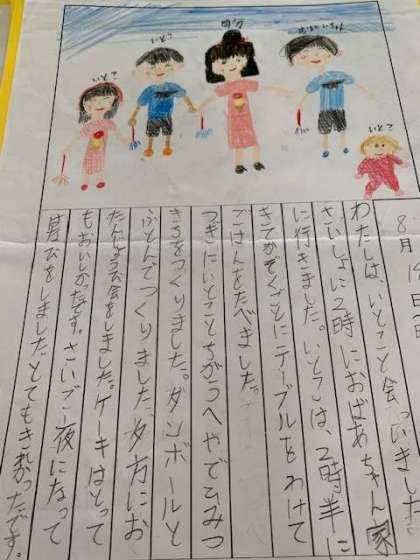 いとこ
いとこ
自分
いとこ
8月
わたしは、いとこと会っいきました
さいしょに2時におばあちゃん家
に行きました。いとこは、2時半に
きてかぞくごとにテーブルをわけて
ごはんをたべました。
つぎにいとことちがうへやでひみつ
きちをつくりました。ダンボールと
ふとんでつくりました。夕方にお
たんじょう会をしました。ケーキはとって
もおいしかったです。さいご夜になって
花びをしました。とてもきれかったです。